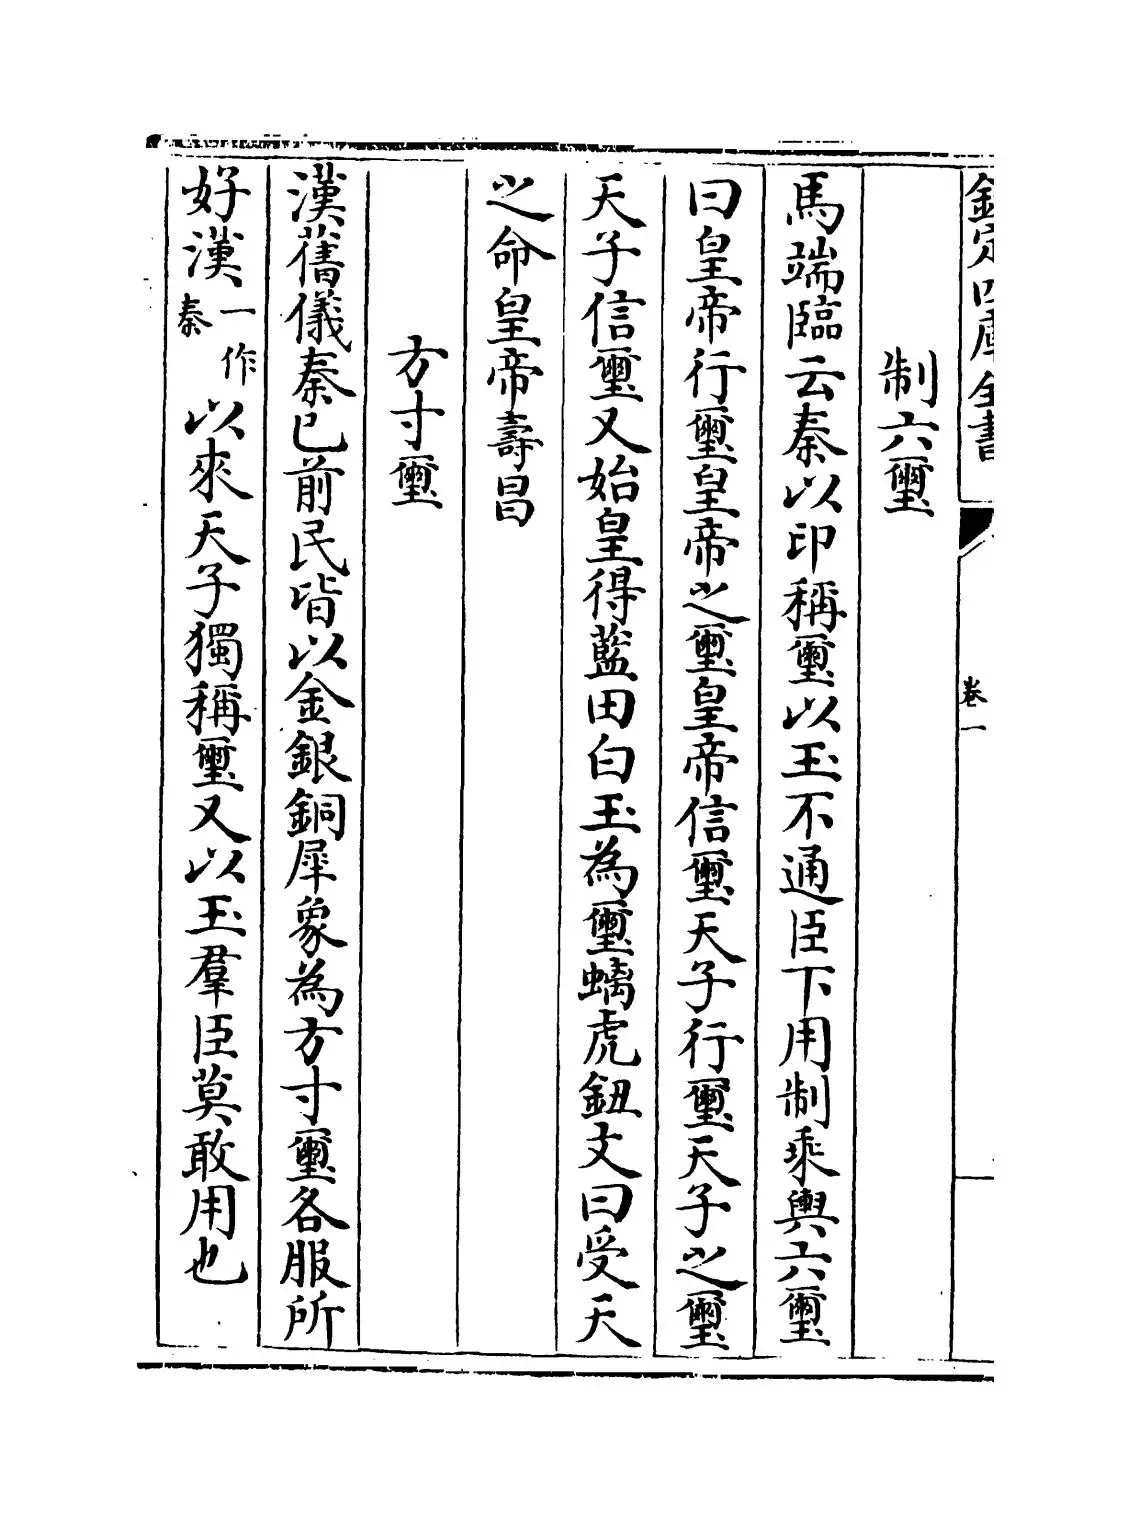 欽定四庫全書
卷一
制六璽
馬端臨云秦以印稱璽以玉不通臣下用制乘輿六璽
曰皇帝行璽皇帝之璽皇帝信璽天子行璽天子之璽
天子信璽又始皇得藍田白玉為璽螭虎鈕文曰受天
之命皇帝壽昌
方寸璽
漢舊儀秦已前民皆以金銀銅犀象為方寸璽各服所
好漢一作秦以來天子獨稱璽又以玉羣臣莫敢用也